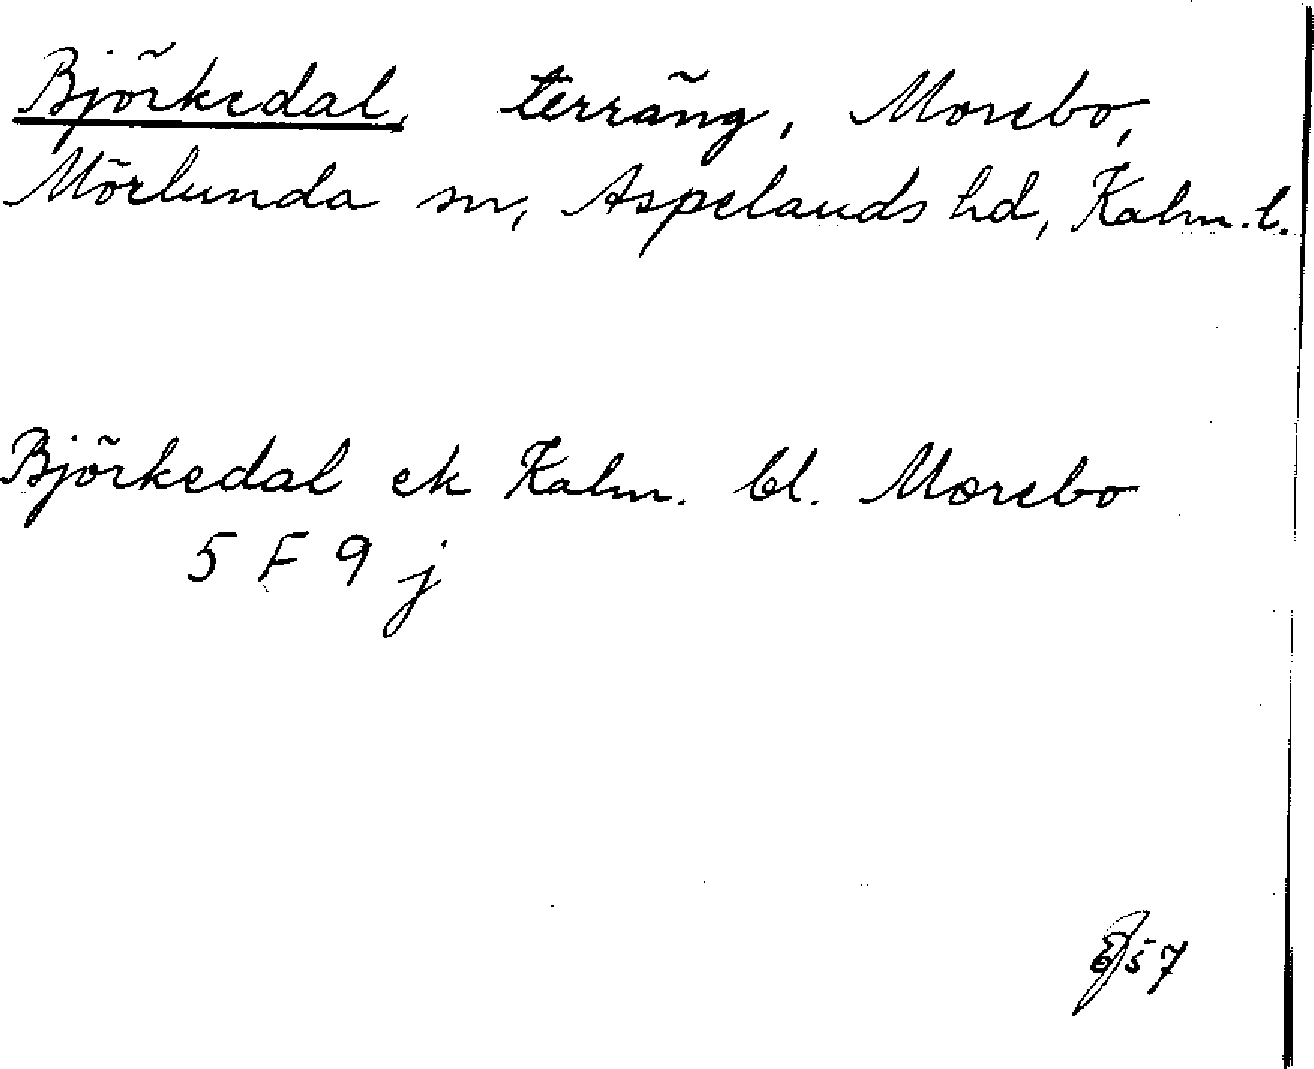 Björkedal, terräng, Morebo,
Mörlunda sn, Aspelands hd, Kalm. l.
Björkedal ek Kalm. bl. Morebo
5 F 9 j
57